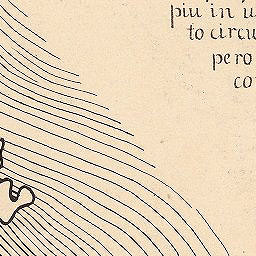 piu in u
to circu
pero
co